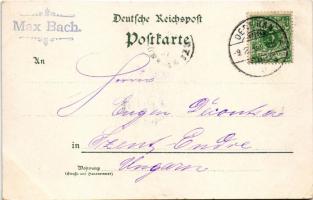 Max Bach.
Deutsche Reichspost
Postkarte
An
Herrn
Eugen
in Szent Endre
Wohnung
(Straße und Hausnummer)
Ungarn